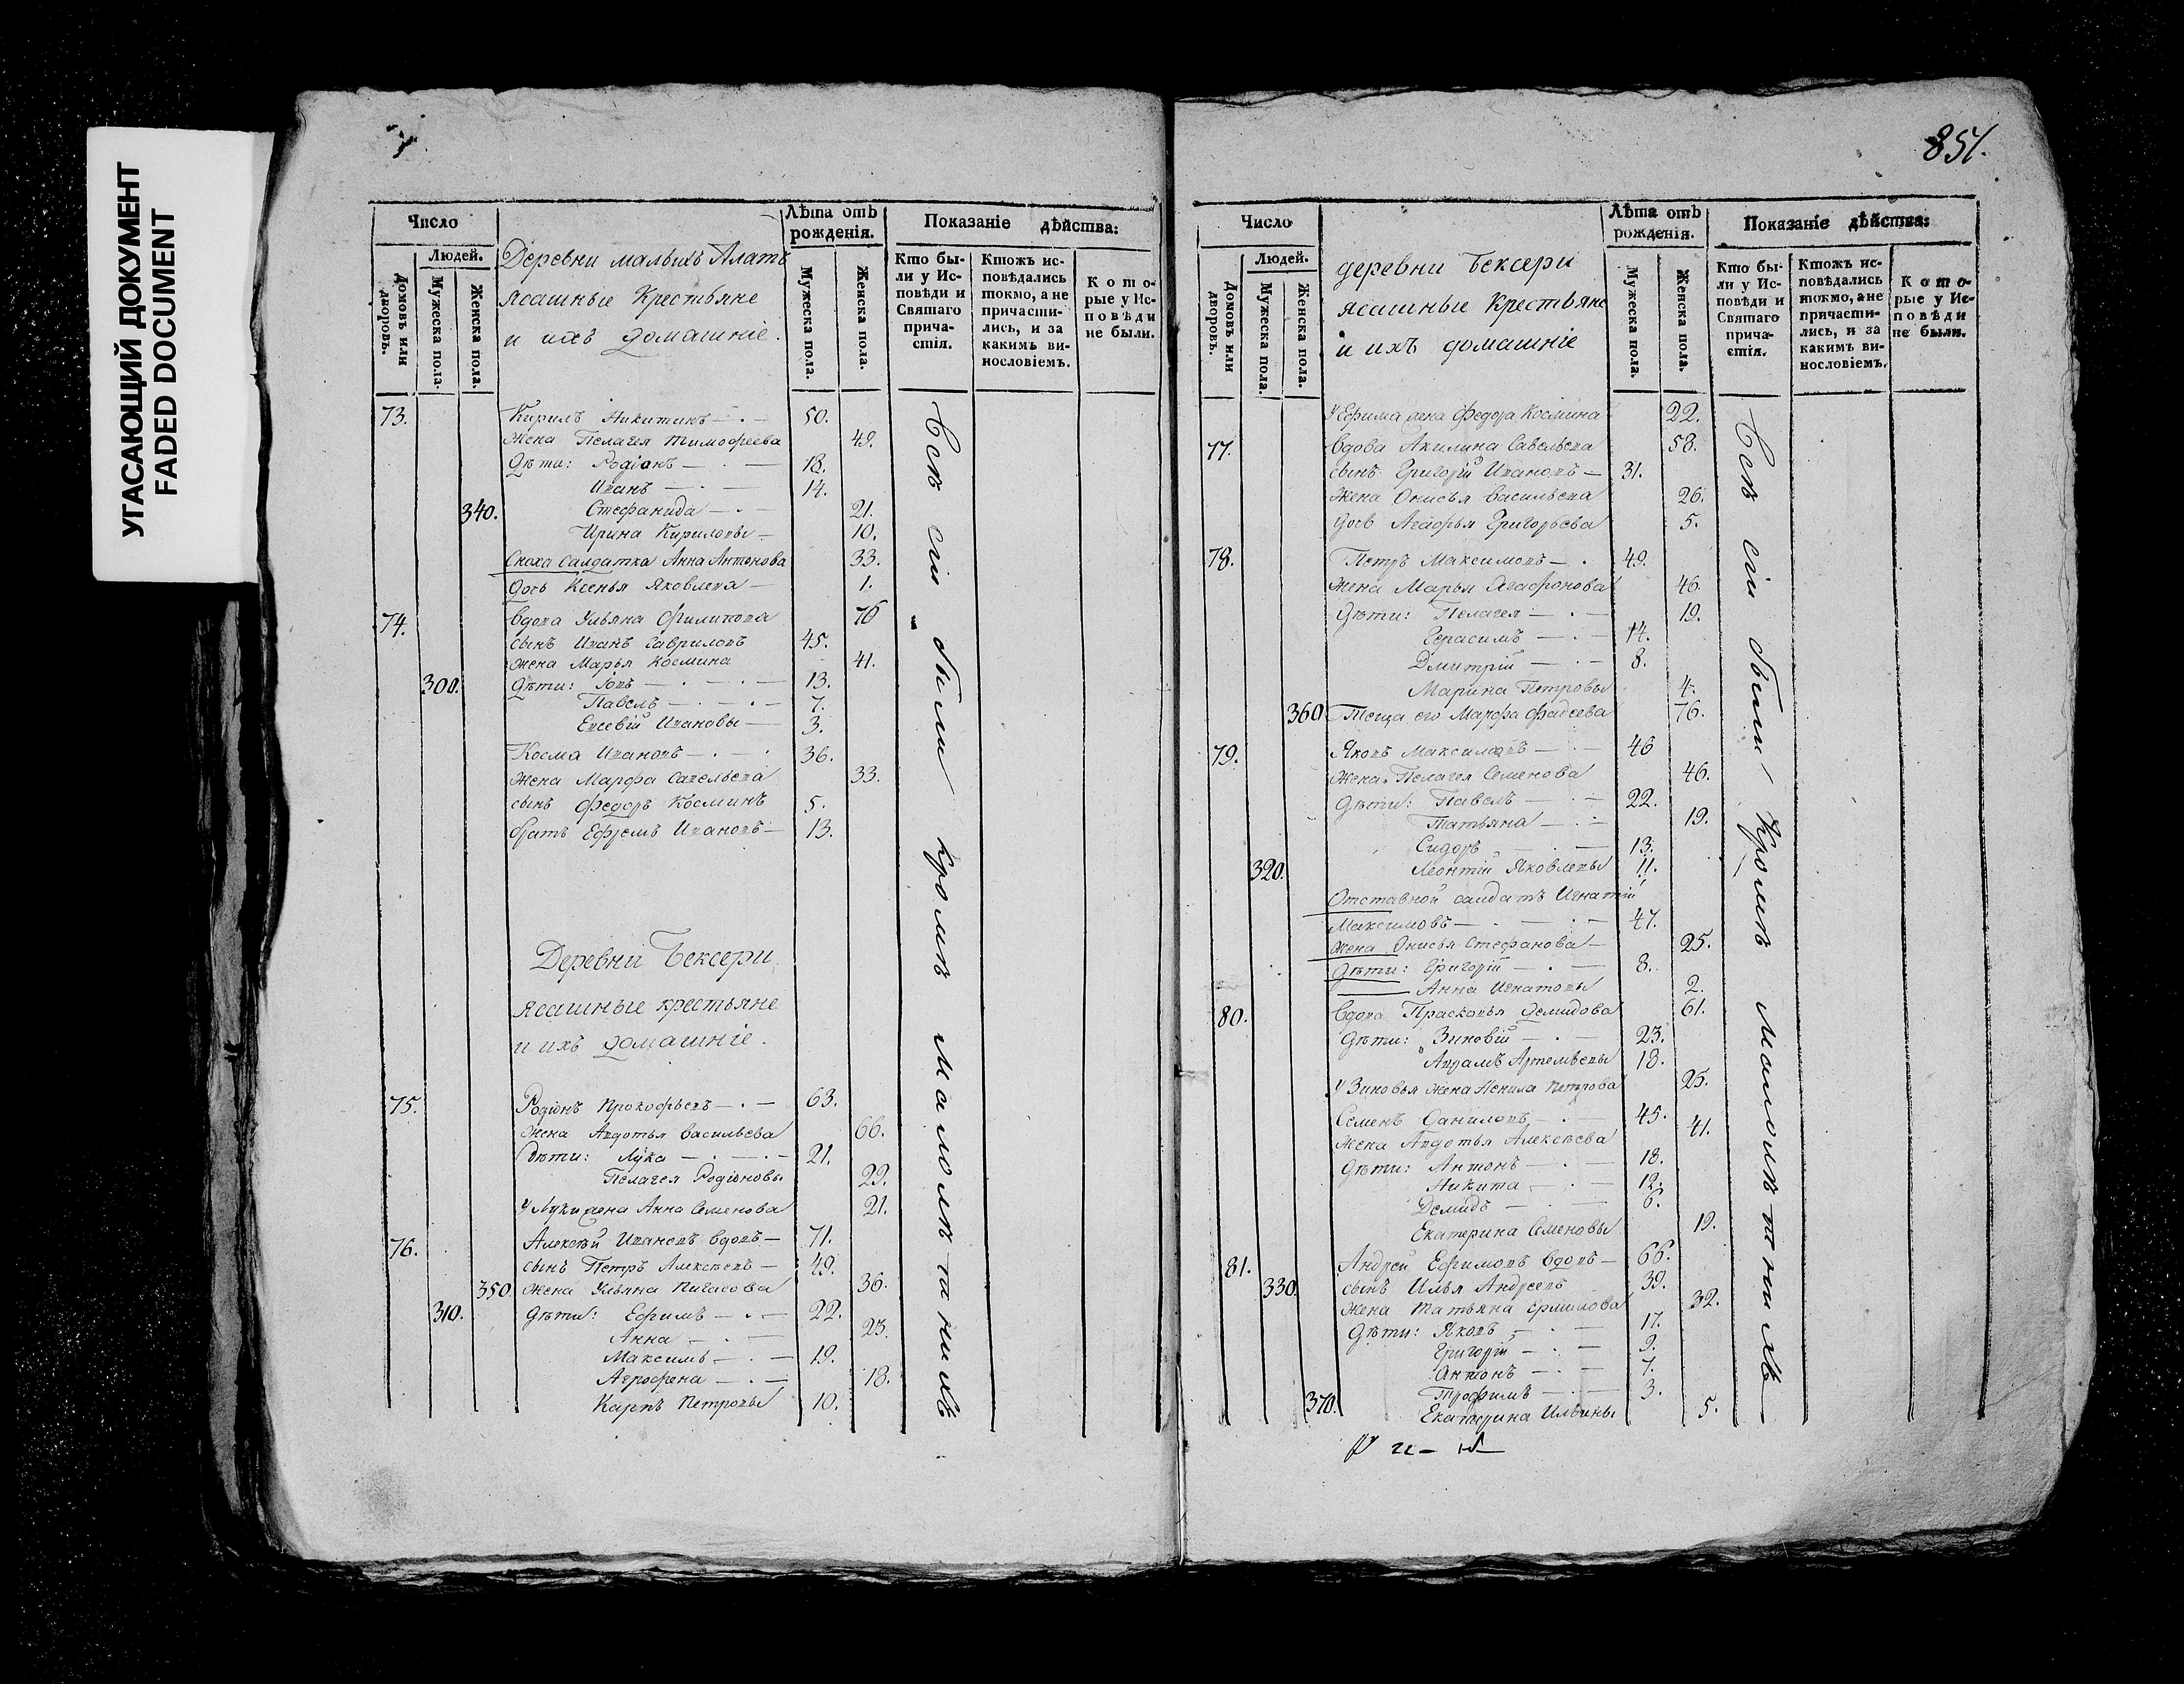 УГАСАЮЩИЙ ДОКУМЕНТ
FADED DOCUMENT
Число
Людей.
Домовъ или дворовъ.
Мужеска пола.
Женска пола.
Деревни малыхъ Алатъ
ясашные Крестьяне
и ихъ домашніе.
Лѣта отъ рожденія.
Мужеска пола.
Женска пола.
Показаніе дѣйства:
Кто были у Исповѣди и Святаго причастія.
Ктожъ исповѣдались токмо, а не причастились, и за какимъ винословіемъ.
Которые у Исповѣди не были.
73. Кирилъ Никитинъ 50.
жена Пелагея Тимофеева 49.
дѣти: Родіонъ 18.
Иванъ 14.
340. Стефанида 21.
Ирина Кириловы 10.
Сноха Салдатка Анна Антонова 33.
дочь Ксенья Яковлева 1.
74. Вдова Ульяна Филипова 76
сынъ Иванъ Гавриловъ 45.
жена Марья Космина 41.
300. дѣти: Іовъ 13.
Павелъ 7.
Евсевій Ивановы 3.
Косма Ивановъ 36.
жена Марфа Савельева 33.
сынъ Федоръ Косминъ 5.
братъ Ефремъ Ивановъ 13.
Деревни Бексери
ясашные крестьяне
и ихъ домашніе.
75. Родіонъ Прокофьевъ 63.
жена Авдотья Васильева 66.
дѣти: Лука 21.
Пелагея Родіоновы 29.
У Луки жена Анна Семенова 21.
76. Алексѣй Ивановъ вдовъ 71.
сынъ Петръ Алексѣевъ 49.
350 жена Ульяна Пигасова 36.
310. дѣти: Ефимъ 22.
Анна 23.
Максимъ 19.
Агрофена 18.
Карпъ Петровы 10.
Всѣ сіи были кромѣ малолѣтнихъ
851.
Число
Людей.
Домовъ или дворовъ.
Мужеска пола.
Женска пола.
деревни Бексери
ясашные Крестьяне
и ихъ домашніе
Лѣта отъ рожденія.
Мужеска пола.
Женска пола.
Показаніе дѣйства:
Кто были у Исповѣди и Святаго причастія.
Ктожъ исповѣдались токмо, а не причастились, и за какимъ винословіемъ.
Которые у Исповѣди не были.
У Ефима жена Федора Космина 22.
77. Вдова Акилина Савельева 58.
сынъ Григорій Ивановъ 31.
жена Онисья Васильева 26.
дочь Агафья Григорьева 5.
78. Петръ Максимовъ 49.
жена Марья Агафонова 46.
дѣти: Пелагея 19.
Герасимъ 14.
Дмитрій 8.
Марина Петровы 4.
360 Теща его Марфа Фадеева 76.
79. Яковъ Максимовъ 46
жена Пелагея Семенова 46.
дѣти: Павелъ 22.
Татьяна 19.
Сидоръ 13.
320. Леонтій Яковлевы 11.
Отставной салдатъ Игнатій
Максимовъ 47.
жена Онисья Стефанова 25.
дѣти: Григорій 8.
Анна Игнатовы 2.
80. Вдова Прасковья Демидова 61.
дѣти: Зиновій 23.
Авдамъ Артемьевы 18.
У Зиновья жена Ненила Петрова 25.
Семенъ Даниловъ 45.
жена Авдотья Алексѣева 41.
дѣти: Антонъ 18.
Никита 12.
Демидъ 6.
Екатерина Семеновы 19.
81. Андрей Ефимовъ вдовъ 66.
330. сынъ Илья Андреевъ 39.
жена Татьяна Ермилова 32.
дѣти: Яковъ 17.
Григорій 9.
Антонъ 7.
Трофимъ 3.
370. Екатерина Ильины 5.
Всѣ сіи были кромѣ малолѣтнихъ